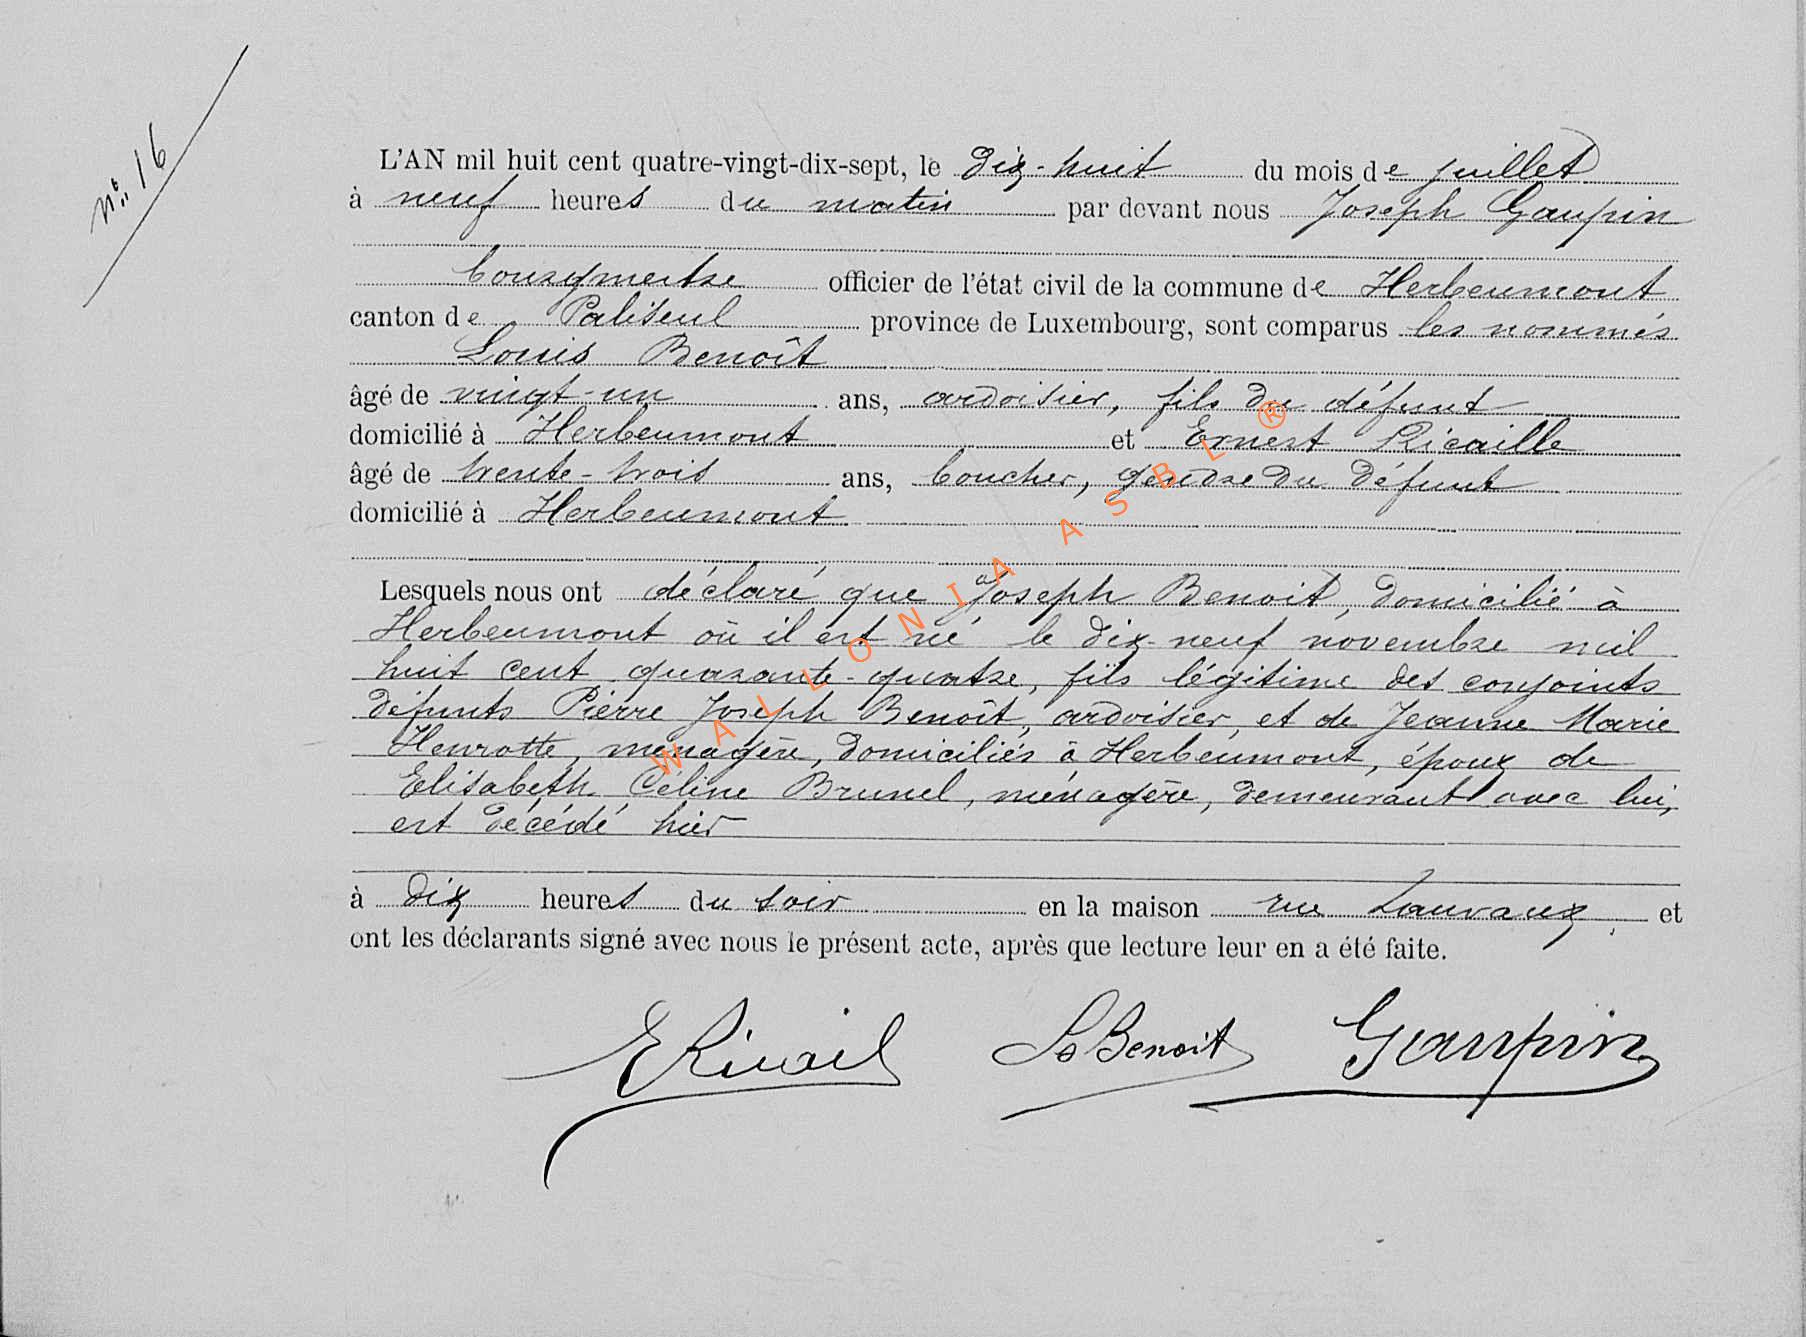 n° 16
L'AN mil huit cent quatre-vingt-dix-sept, le dix-huit du mois de juillet
à neuf heures du matin par devant nous Joseph Gaupin
bourgmestre officier de l'état civil de la commune de Herbeumont
canton de Paliseul province de Luxembourg, sont comparus les nommés
Louis Benoît
âgé de vingt-un ans, ardoisier, fils du défunt
domicilié à Herbeumont et Ernest Ricaille
âgé de trente-trois ans, boucher, gendre du défunt
domicilié à Herbeumont
Lesquels nous ont déclaré que Joseph Benoit, domicilié à
Herbeumont où il est né le dix-neuf novembre mil
huit cent quarante-quatre, fils légitime des conjoints
défunts Pierre Joseph Benoît, ardoisier, et de Jeanne Marie
Henrotte, ménagère, domiciliés à Herbeumont, époux de
Elisabeth Céline Brunel, ménagère, demeurant avec lui,
est décédé hier
à dix heures du soir en la maison rue Lauvaux, et
ont les déclarants signé avec nous le présent acte, après que lecture leur en a été faite.
E Ricail Ls Benoit Gaupin
WALLONIA ASBL ®